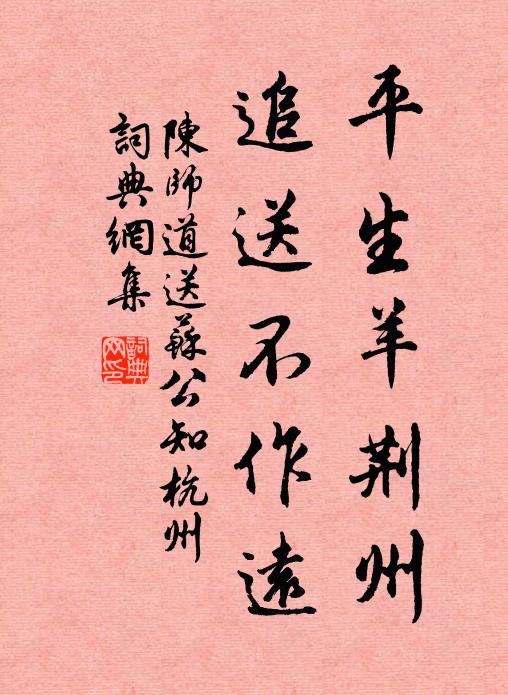 平生羊荆州
追送不作遠
陳師道送蘇公知杭州
詞典網集
詞典網印